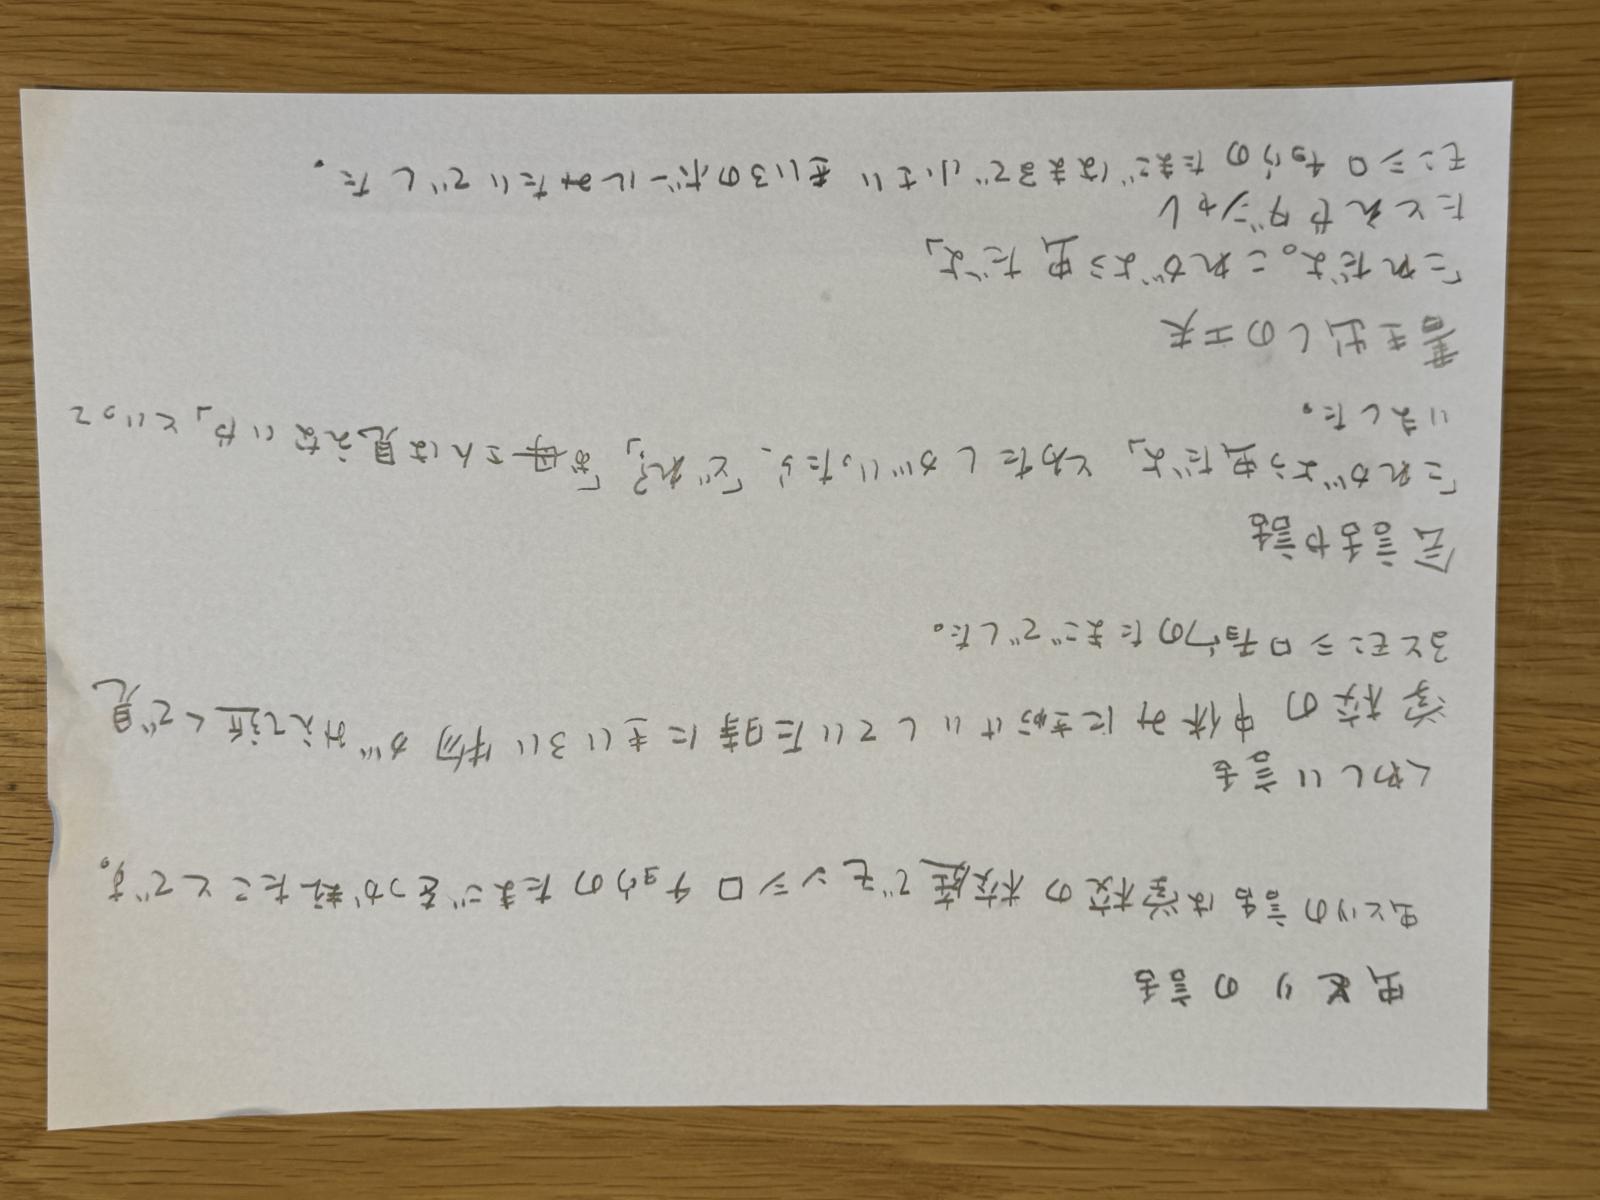 虫とりの話
虫とりの話は学校の校庭でモンシロチョウのたまごをつかたことです。
くわしい話
学校の中休みにけいしていた時にきいろい物がみえて近くで見
るとモンシロチョウのたまごでした。
会話や話
「これがよう虫だよ」とわたしがいったら、「どれ?」「お母さんは見えないや」といって
いました。
書き出しの工夫
「これだよ。これがよう虫だよ」
たとえやダジャレ
モンシロチョウのたまごはまるで小さいきいろのボールみたいでした。